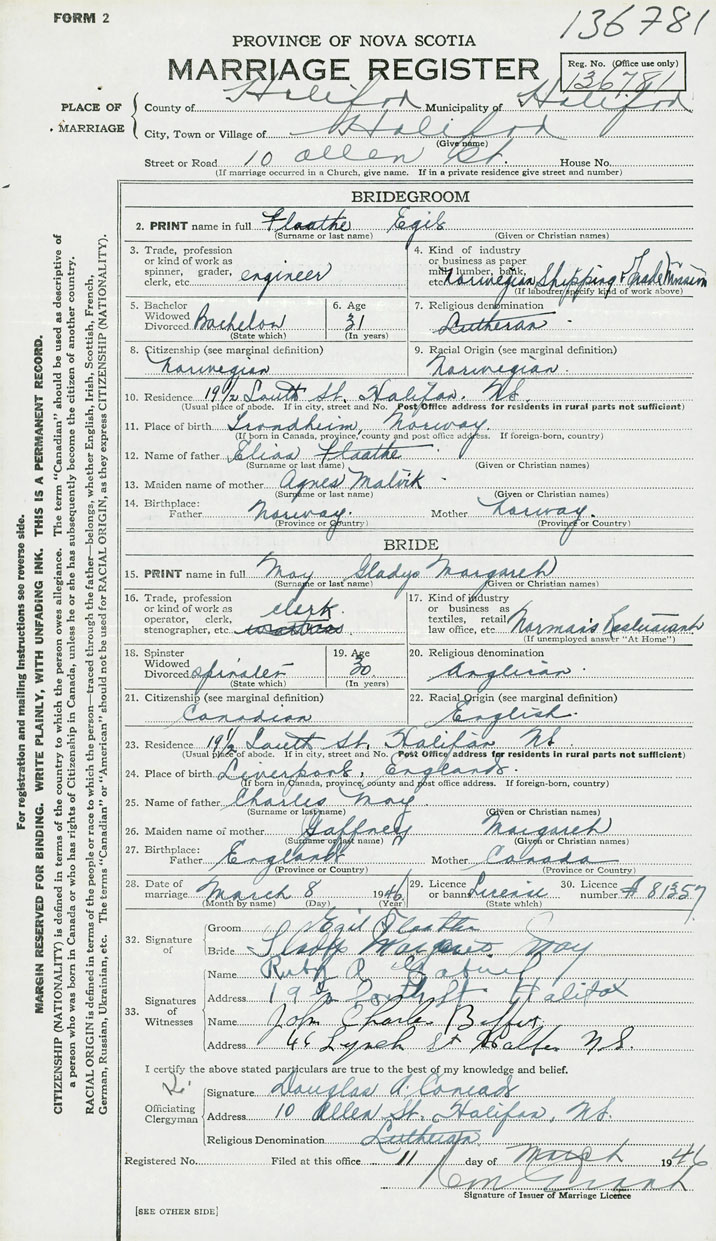 FORM 2
136781
PROVINCE OF NOVA SCOTIA
MARRIAGE REGISTER
Reg. No. (Office use only)
136781
PLACE OF MARRIAGE
County of Halifax Municipality of Halifax
City, Town or Village of Halifax
(Give name)
Street or Road 10 Allen St. House No.
(If marriage occurred in a Church, give name. If in a private residence give street and number)
BRIDEGROOM
2. PRINT name in full Flaathe Egil
(Surname or last name) (Given or Christian names)
3. Trade, profession or kind of work as spinner, grader, clerk, etc. engineer
4. Kind of industry or business as paper mill, lumber, bank, etc. Norwegian Shipping & Trade Mission
(If labourer specify kind of work above)
5. Bachelor Widowed Divorced Bachelor
(State which)
6. Age 31
(In years)
7. Religious denomination
Lutheran
8. Citizenship (see marginal definition)
Norwegian
9. Racial Origin (see marginal definition)
Norwegian.
10. Residence 19½ South St. Halifax. N.S.
(Usual place of abode. If in city, street and No. Post Office address for residents in rural parts not sufficient)
11. Place of birth Trondheim, Norway.
(If born in Canada, province, county and post office address. If foreign-born, country)
12. Name of father Elias Flaathe
(Surname or last name) (Given or Christian names)
13. Maiden name of mother Agnes Malvik
(Surname or last name) (Given or Christian names)
14. Birthplace: Father Norway. Mother Norway.
(Province or Country) (Province or Country)
BRIDE
15. PRINT name in full May Gladys Margaret
(Surname or last name) (Given or Christian names)
16. Trade, profession or kind of work as operator, clerk, stenographer, etc. clerk.
17. Kind of industry or business as textiles, retail, law office, etc. Norman's Restaurant
(If unemployed answer "At Home")
18. Spinster Widowed Divorced spinster
(State which)
19. Age 30
(In years)
20. Religious denomination
Anglican
21. Citizenship (see marginal definition)
Canadian
22. Racial Origin (see marginal definition)
English.
23. Residence 19½ South St. Halifax N.S.
(Usual place of abode. If in city, street and No. Post Office address for residents in rural parts not sufficient)
24. Place of birth Liverpool, England.
(If born in Canada, province, county and post office address. If foreign-born, country)
25. Name of father Charles May
(Surname or last name) (Given or Christian names)
26. Maiden name of mother Gaffney Margaret
(Surname or last name) (Given or Christian names)
27. Birthplace: Father England Mother Canada
(Province or Country) (Province or Country)
28. Date of marriage March 8 1946
(Month by name) (Day) (Year)
29. Licence or banns License
(State which)
30. Licence number # 81357
32. Signature of
Groom Egil Flaathe
Bride Gladys Margaret May
33. Signatures of Witnesses
Name Ruby A
Address 19½ South St Halifax
Name John Charles
Address 46 Lynch St Halifax N.S.
I certify the above stated particulars are true to the best of my knowledge and belief.
Officiating Clergyman
Signature Douglas A. Conrad
Address 10 Allen St. Halifax, N.S.
Religious Denomination Lutheran.
Registered No. Filed at this office 11 day of March 1946
Signature of Issuer of Marriage Licence
[SEE OTHER SIDE]
For registration and mailing instructions see reverse side.
MARGIN RESERVED FOR BINDING. WRITE PLAINLY, WITH UNFADING INK. THIS IS A PERMANENT RECORD.
CITIZENSHIP (NATIONALITY) is defined in terms of the country to which the person owes allegiance. The term "Canadian" should be used as descriptive of
a person who was born in Canada or who has rights of Citizenship in Canada, unless he or she has subsequently become the citizen of another country.
RACIAL ORIGIN is defined in terms of the people or race to which the person—traced through the father—belongs, whether English, Irish, Scottish, French,
German, Russian, Ukrainian, etc. The terms "Canadian" or "American" should not be used for RACIAL ORIGIN, as they express CITIZENSHIP (NATIONALITY).